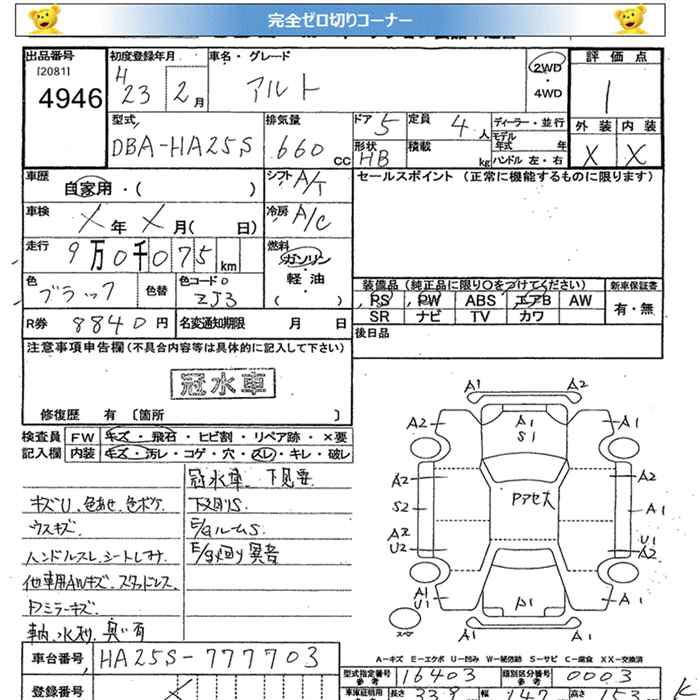 完全ゼロ切りコーナー
出品番号
[2081]
4946
初度登録年月
H
23 2月
車名・グレード
アルト
2WD
・
4WD
評価点
1
型式
DBA-HA25S
排気量
660
CC
ドア 5
定員 4 人
ディーラー・並行
形状
HB
積載
kg
モデル
年式 年
ハンドル 左・右
外装 内装
X X
車歴
自家用・( )
シフト A/T
セールスポイント (正常に機能するものに限ります)
車検
X年 X月( 日)
冷房 A/C
走行
9万0千075km
燃料
ガソリン
軽・油
( )
色
ブラック
色替
色コード
ZJ3
装備品 (純正品に限り○をつけてください)
新車保証書
PS PW ABS エアB AW
有・無
SR ナビ TV カワ
R券 8840円
名変通知期限 月 日
後日品
注意事項申告欄(不具合内容等は具体的に記入して下さい)
冠水車
修復歴 有 〔箇所 〕
検査員
記入欄
FW キズ・飛石・ヒビ割・リペア跡・×要
内装 キズ・汚レ・コゲ・穴・スレ・キレ・破レ
冠水車 下見要
キズU、色あせ、色ボケ
下廻りS
ウスキズ
E/gルームS
ハンドルスレ、シートしみ
E/g廻り異音
他車用AWキズ、スタッドレス
Rミラーキズ
A1 A2
A2 A1 A1
S1
A2 A2
S2 Pアセス A1
A2 U1
U2 A2
A1 A1
U1 A1 A1
スペア
A-キズ E-エクボ U-凹み W-補修跡 S-サビ C-腐食 XX-交換済
車台番号 HA25S-777703
型式指定番号
参考
16403
類別区分番号
参考
0003
登録番号
車庫証明用
長さ 339
幅 147
高さ